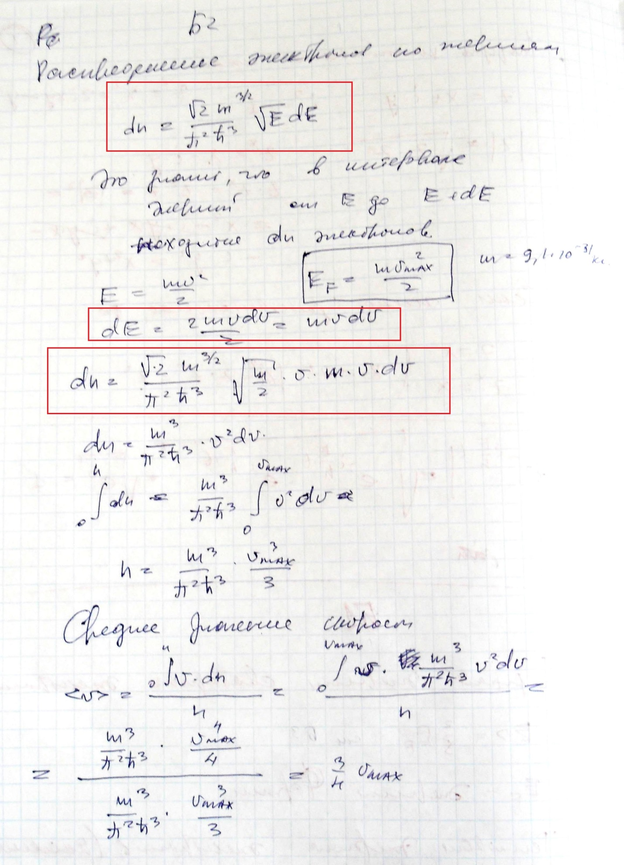 Б2
Распределение электронов по энергиям
dn = √2 m^3/2 / π²ħ³ √E dE
Это значит, что в интервале
энергий от E до E+dE
находится dn электронов
E = mv²/2    E_F = mv_max²/2    m = 9,1·10^-31 кг
dE = 2mvdv/2 = mvdv
dn = √2 m^3/2 / π²ħ³ √(m/2) · v · m · v · dv
dn = m³/π²ħ³ · v²dv.
₀∫ⁿ dn = m³/π²ħ³ ₀∫^v_max v²dv =
n = m³/π²ħ³ · v_max³/3
Среднее значение скорости
<v> = ₀∫ⁿ v·dn / n = ₀∫^v_max v · m³/π²ħ³ v²dv / n =
= (m³/π²ħ³ · v_max⁴/4) / (m³/π²ħ³ · v_max³/3) = 3/4 v_max